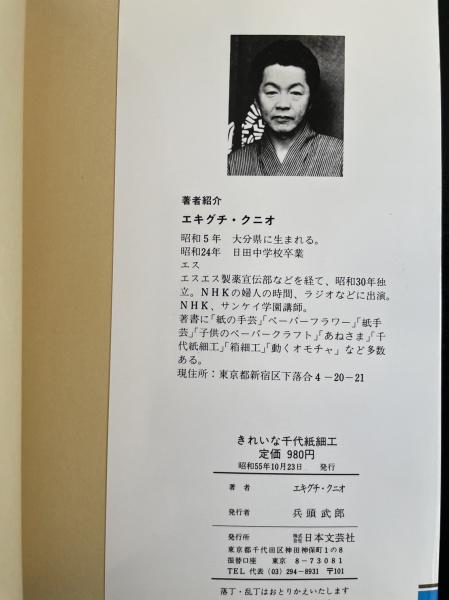 著者紹介
エキグチ・クニオ
昭和5年　大分県に生まれる。
昭和24年　日田中学校卒業
エス
エスエス製薬宣伝部などを経て、昭和30年独
立。NHKの婦人の時間、ラジオなどに出演。
NHK、サンケイ学園講師。
著書に「紙の手芸」「ペーパーフラワー」「紙手
芸」「子供のペーパークラフト」「あねさま」「千
代紙細工」「箱細工」「動くオモチャ」など多数
ある。
現住所：東京都新宿区下落合4－20－21
きれいな千代紙細工
定価 980円
昭和55年10月23日　発行
著者　エキグチ・クニオ
発行者　兵頭武郎
発行所　株式会社日本文芸社
東京都千代田区神田神保町1の8
振替口座　東京　8－73081
TEL 代表 (03) 294－8931 〒101
落丁・乱丁はおとりかえいたします